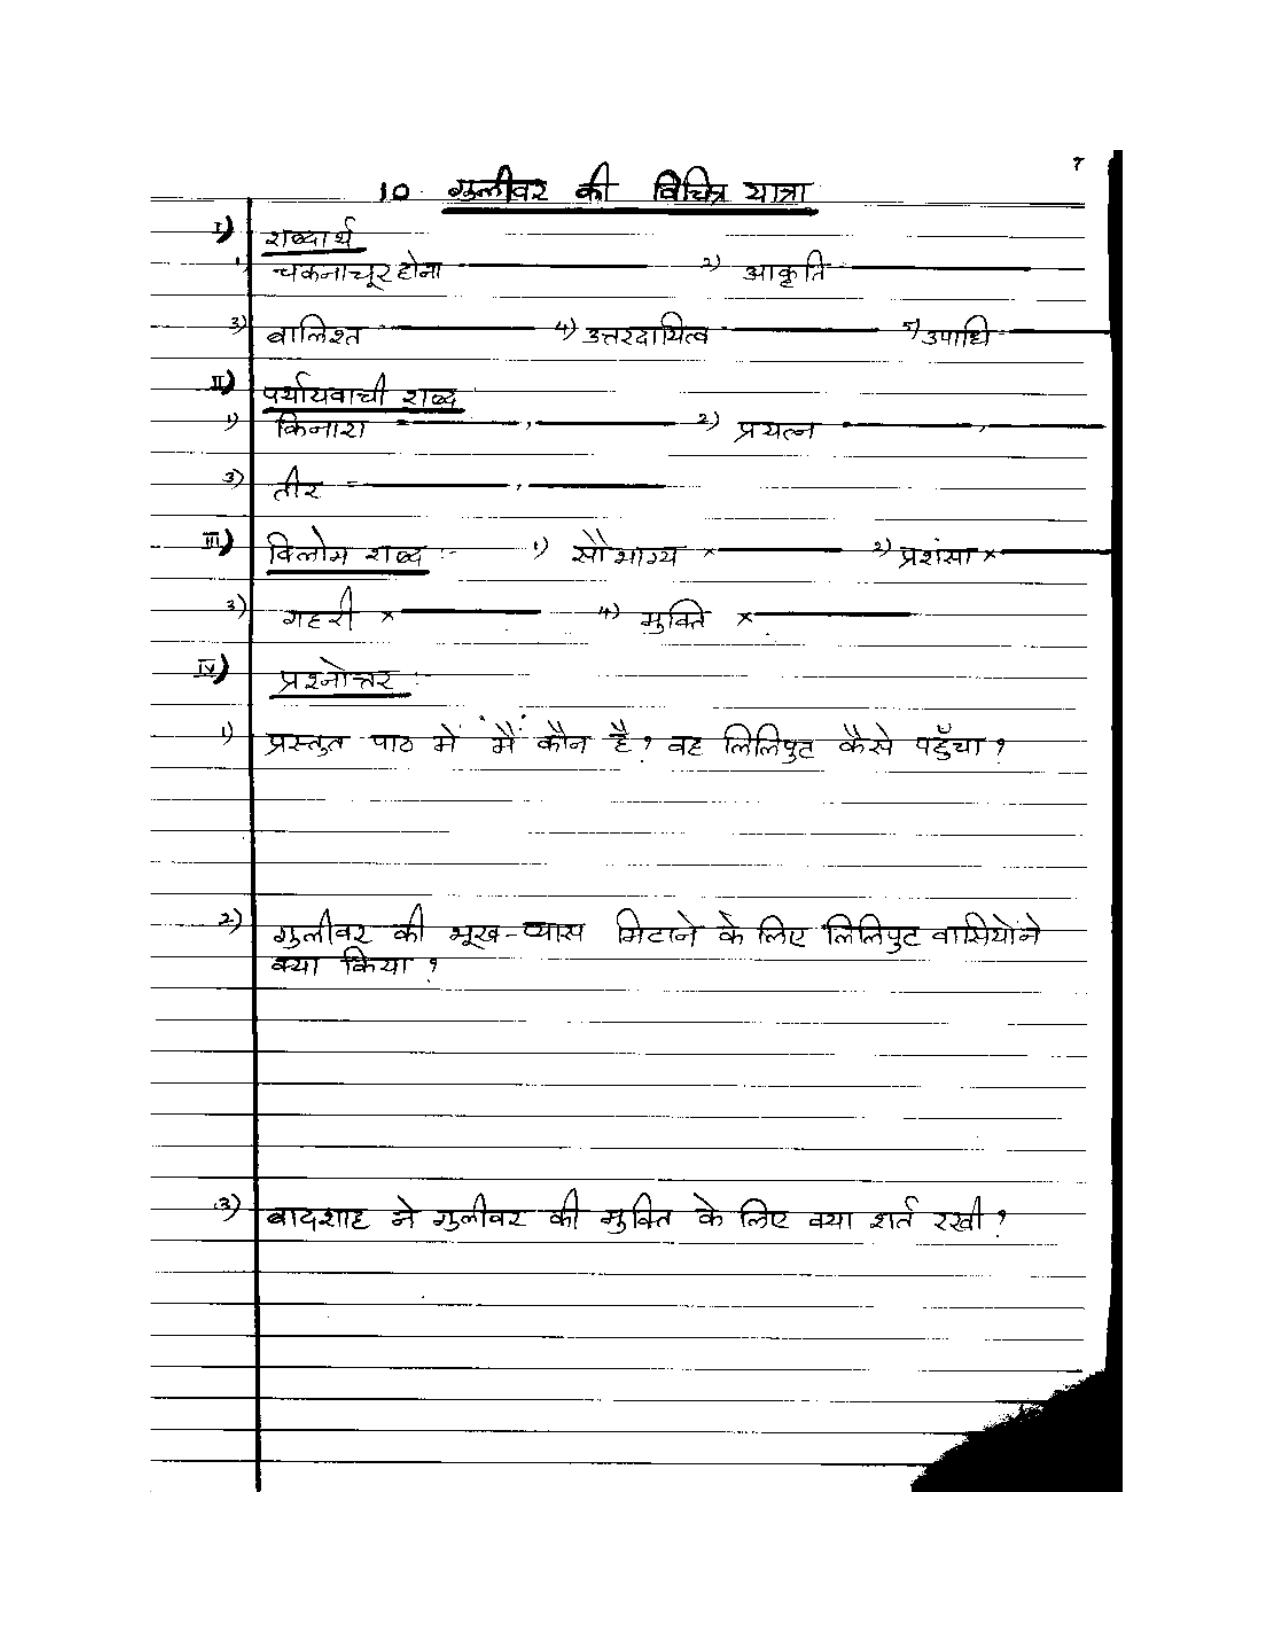 7
10. गुलीवर की विचित्र यात्रा
I) शब्दार्थ
1) चकनाचूर होना - 2) आकृति -
3) बालिश्त - 4) उत्तरदायित्व - 5) उपाधि -
II) पर्यायवाची शब्द
1) किनारा = , 2) प्रयत्न - ,
3) तीर = ,
III) विलोम शब्द :- 1) सौभाग्य × 2) प्रशंसा ×
3) गहरी × 4) मुक्ति ×
IV) प्रश्नोत्तर :-
1) प्रस्तुत पाठ में 'मैं' कौन है? वह लिलिपुट कैसे पहुँचा?
2) गुलीवर की भूख-प्यास मिटाने के लिए लिलिपुट वासियोंने
क्या किया?
3) बादशाह ने गुलीवर की मुक्ति के लिए क्या शर्त रखी?